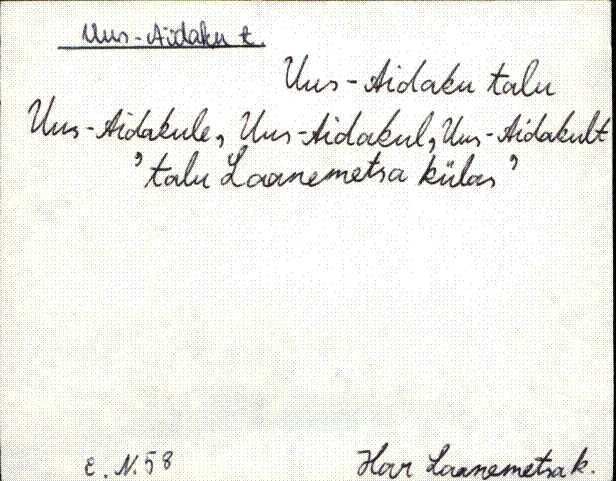 Uus-Aidaku t.
Uus-Aidaku talu
Uus-Aidakule, Uus-Aidakul, Uus-Aidakult
’talu Laanemetsa külas’
E. N. 58
Har Laanemetsa k.